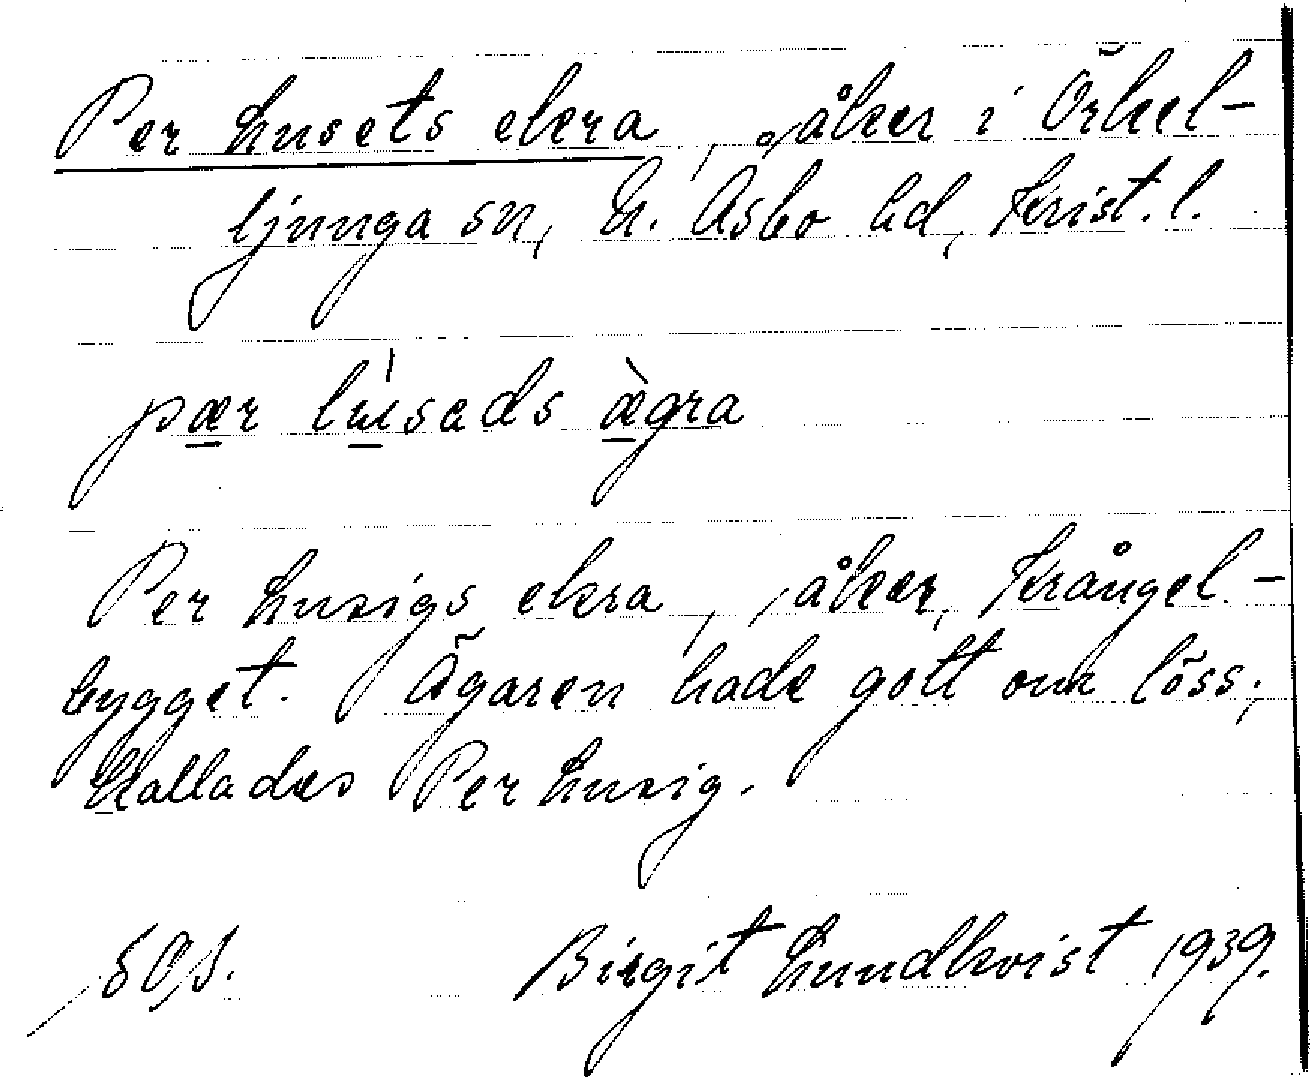 Per Lusets ekra, åker i Örkel-
ljunga sn, N. Åsbo hd, Krist. l.
pær lusads ægra
Per Lusigs ekra, åker, Krångel-
bygget. Ägaren hade gott om löss,
kallades Per Lusig.
Birgit Lundkvist 1939.